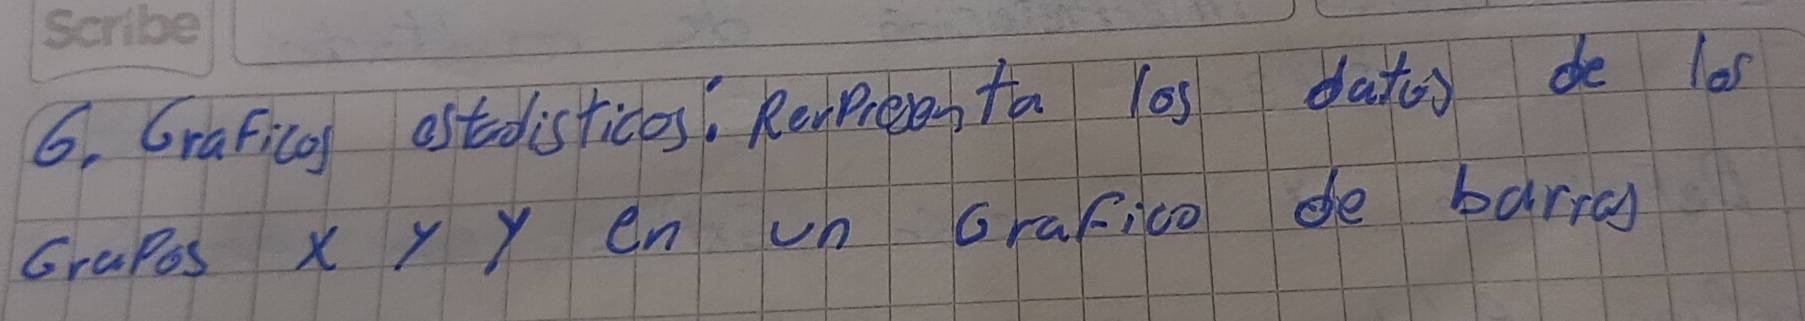 Scribe
6. Graficos estadisticos: Rerpreenta los datos de los
Grupos x y y en un Grafico de barras